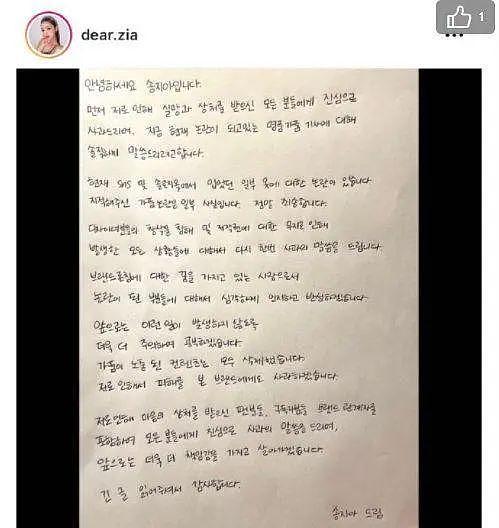 1
dear.zia
안녕하세요 송지아입니다.
먼저 저로 인해 실망과 상처를 받으신 모든 분들에게 진심으로
사과드리며, 지금 현재 논란이 되고있는 명품가품 기사에 대해
솔직하게 말씀드리려고합니다.
현재 SNS 및 솔로지옥에서 입었던 일부 옷에 대한 논란이 있습니다
지적해주신 가품논란은 일부 사실입니다. 정말 죄송합니다.
디자이너분들의 창작물 침해 및 저작권에 대한 무지로 인해
발생한 모든 상황들에 대해서 다시 한번 사과의 말씀을 드립니다.
브랜드론칭에 대한 꿈을 가지고 있는 사람으로서
논란이 된 부분들에 대해서 심각하게 인지하고 반성하겠습니다.
앞으로는 이런 일이 발생하지 않도록
더욱 더 주의하며 공부하겠습니다.
가품이 노출 된 컨텐츠는 모두 삭제했습니다.
저로 인해서 피해를 본 브랜드에게도 사과하겠습니다.
저로인해 마음의 상처를 받으신 팬분들, 구독자분들 브랜드 관계자를
포함하여 모든 분들에게 진심으로 사과의 말씀을 드리며,
앞으로는 더욱 더 책임감을 가지고 살아가겠습니다.
긴 글 읽어주셔서 감사합니다.
송지아 드림